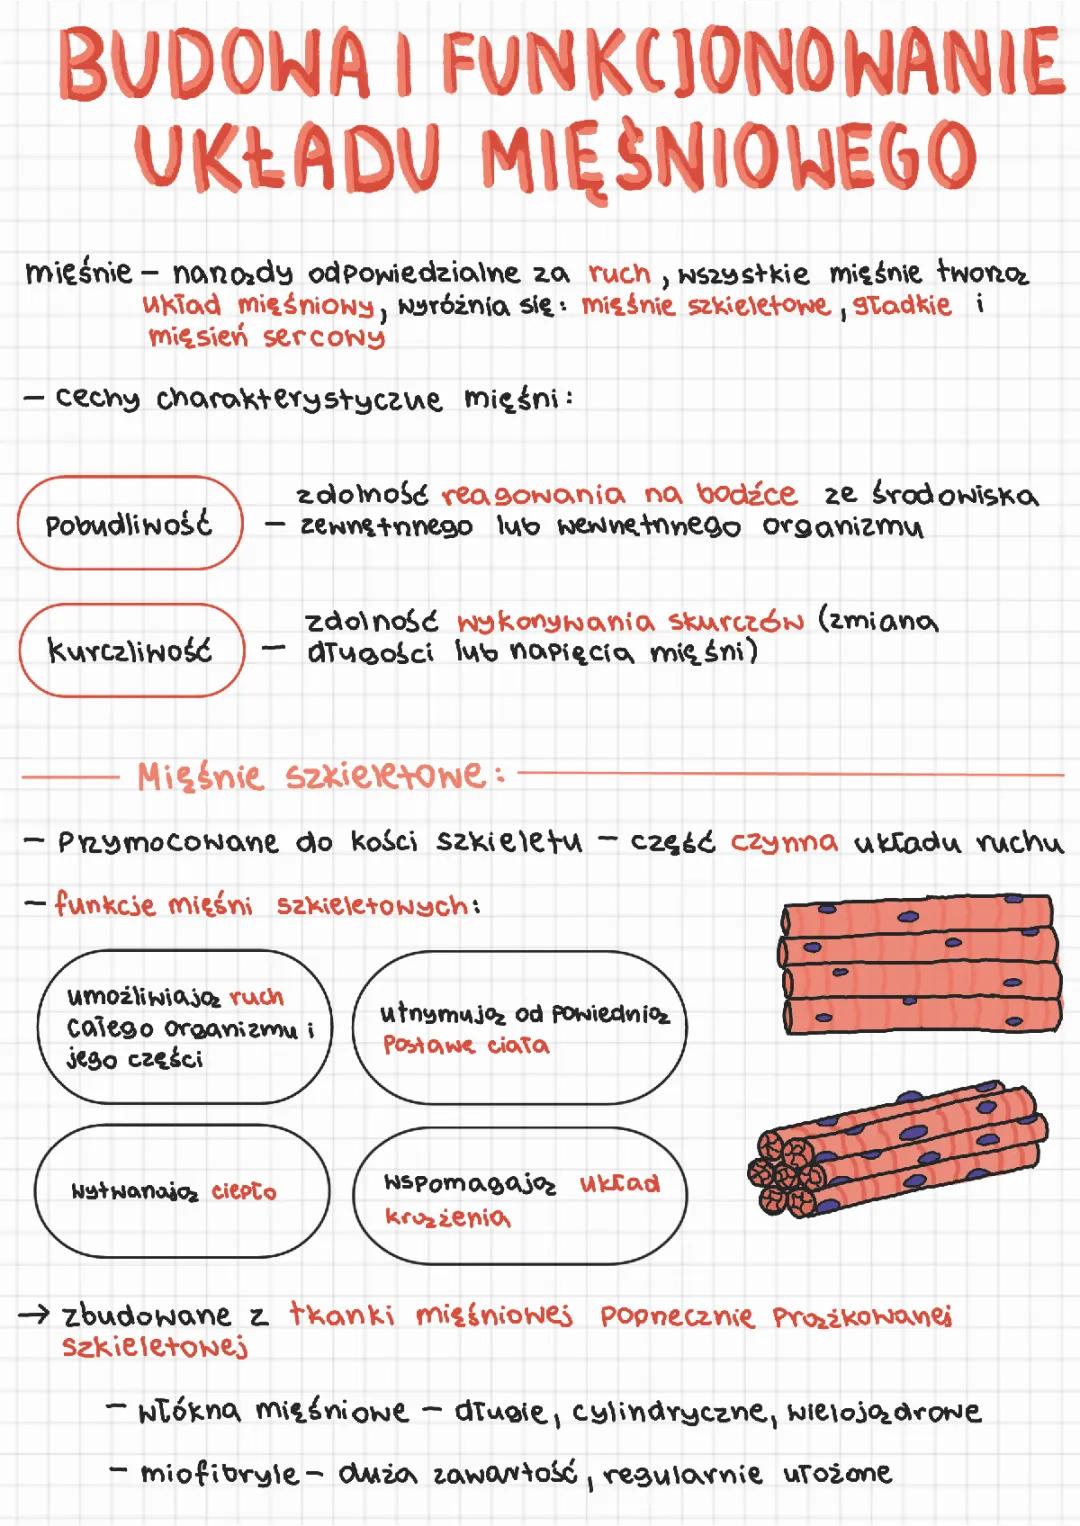 BUDOWA I FUNKCJONOWANIE
UKŁADU MIĘŚNIOWEGO
mięśnie – narządy odpowiedzialne za ruch, wszystkie mięśnie tworzą
układ mięśniowy, wyróżnia się: mięśnie szkieletowe, gładkie i
mięsień sercowy
– cechy charakterystyczne mięśni:
Pobudliwość
zdolność reagowania na bodźce ze środowiska
– zewnętrznego lub wewnętrznego organizmu
kurczliwość
zdolność wykonywania skurczów (zmiana
– długości lub napięcia mięśni)
Mięśnie szkieletowe:
– Przymocowane do kości szkieletu – część czynna układu ruchu
– funkcje mięśni szkieletowych:
umożliwiają ruch
całego organizmu i
jego części
utrzymują odpowiednią
Postawe ciała
wytwarzają ciepło
wspomagają układ
krążenia
→ zbudowane z tkanki mięśniowej poprzecznie prążkowanej
szkieletowej
– włókna mięśniowe – długie, cylindryczne, wielojądrowe
– miofibryle – duża zawartość, regularnie ułożone